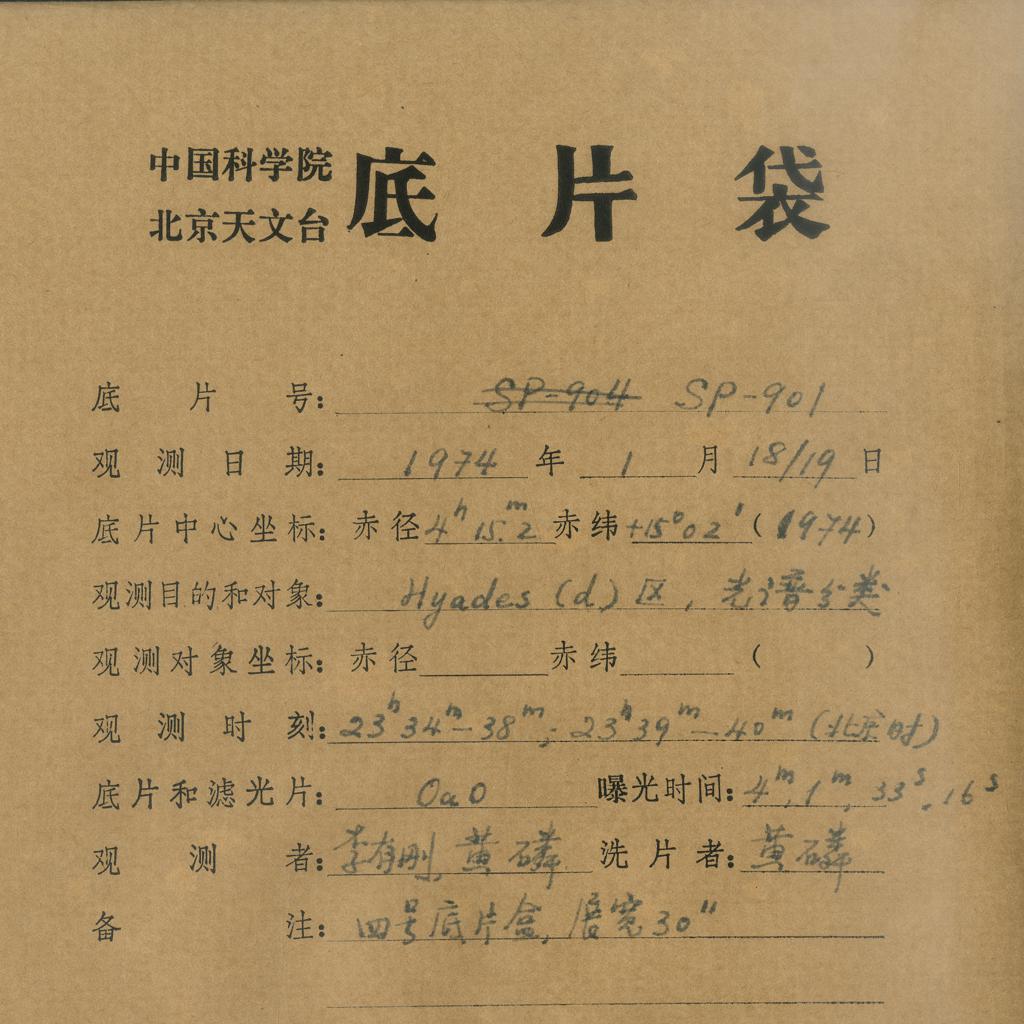 中国科学院
北京天文台
底片袋
底片号：SP-904 SP-901
观测日期：1974年1月18/19日
底片中心坐标：赤径4ʰ15.ᵐ2赤纬+15°02′（1974）
观测目的和对象：Hyades (d)区，光谱分类
观测对象坐标：赤径 赤纬 （ ）
观测时刻：23ʰ34ᵐ－38ᵐ；23ʰ39ᵐ－40ᵐ（北京时）
底片和滤光片：OaO 曝光时间：4ᵐ，1ᵐ，33ˢ，16ˢ
观测者：李有刚，黄磷 洗片者：黄磷
备注：四号底片盒，展宽30″